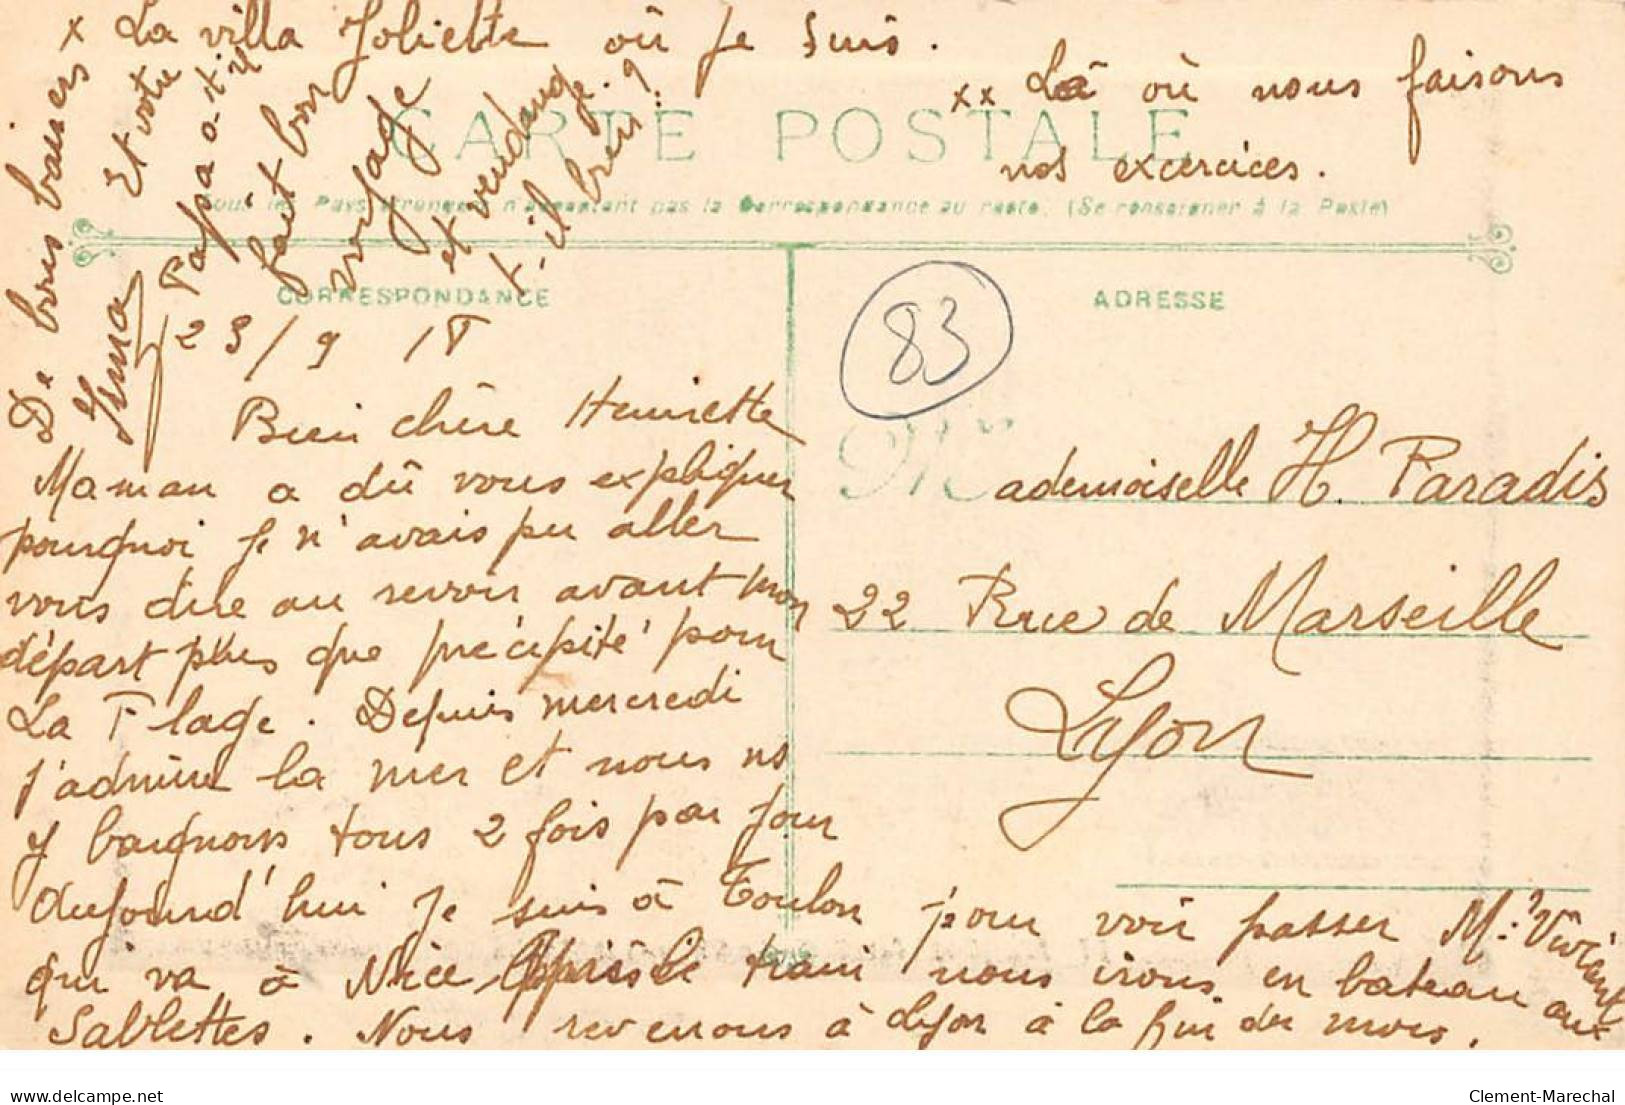 x La villa Joliette où je suis.
xx Là où nous faisons
nos exercices.
CARTE POSTALE
Tous les Pays étrangers n'acceptent pas la Correspondance au recto. (Se renseigner à la Poste)
CORRESPONDANCE
ADRESSE
83
23/9
Bien chère Henriette
Maman a dû vous expliquer
pourquoi je n'avais pu aller
vous dire au revoir avant mon
départ plus que précipité pour
La Plage. Depuis mercredi
j'admire la mer et nous ns
y baignons tous 2 fois par jour
Aujourd'hui je suis à Toulon pour voir passer Mr Viviani
qui va à Nice Après le train nous irons en bateau aux
Sablettes. Nous revenons à Lyon à la fin du mois.
Et votre
Papa a-t-il
fait bon
voyage
et vendange
t-il bien ?
De bons baisers
Irma
Mademoiselle H. Paradis
22 Rue de Marseille
Lyon
delcampe.net
Clement-Marechal